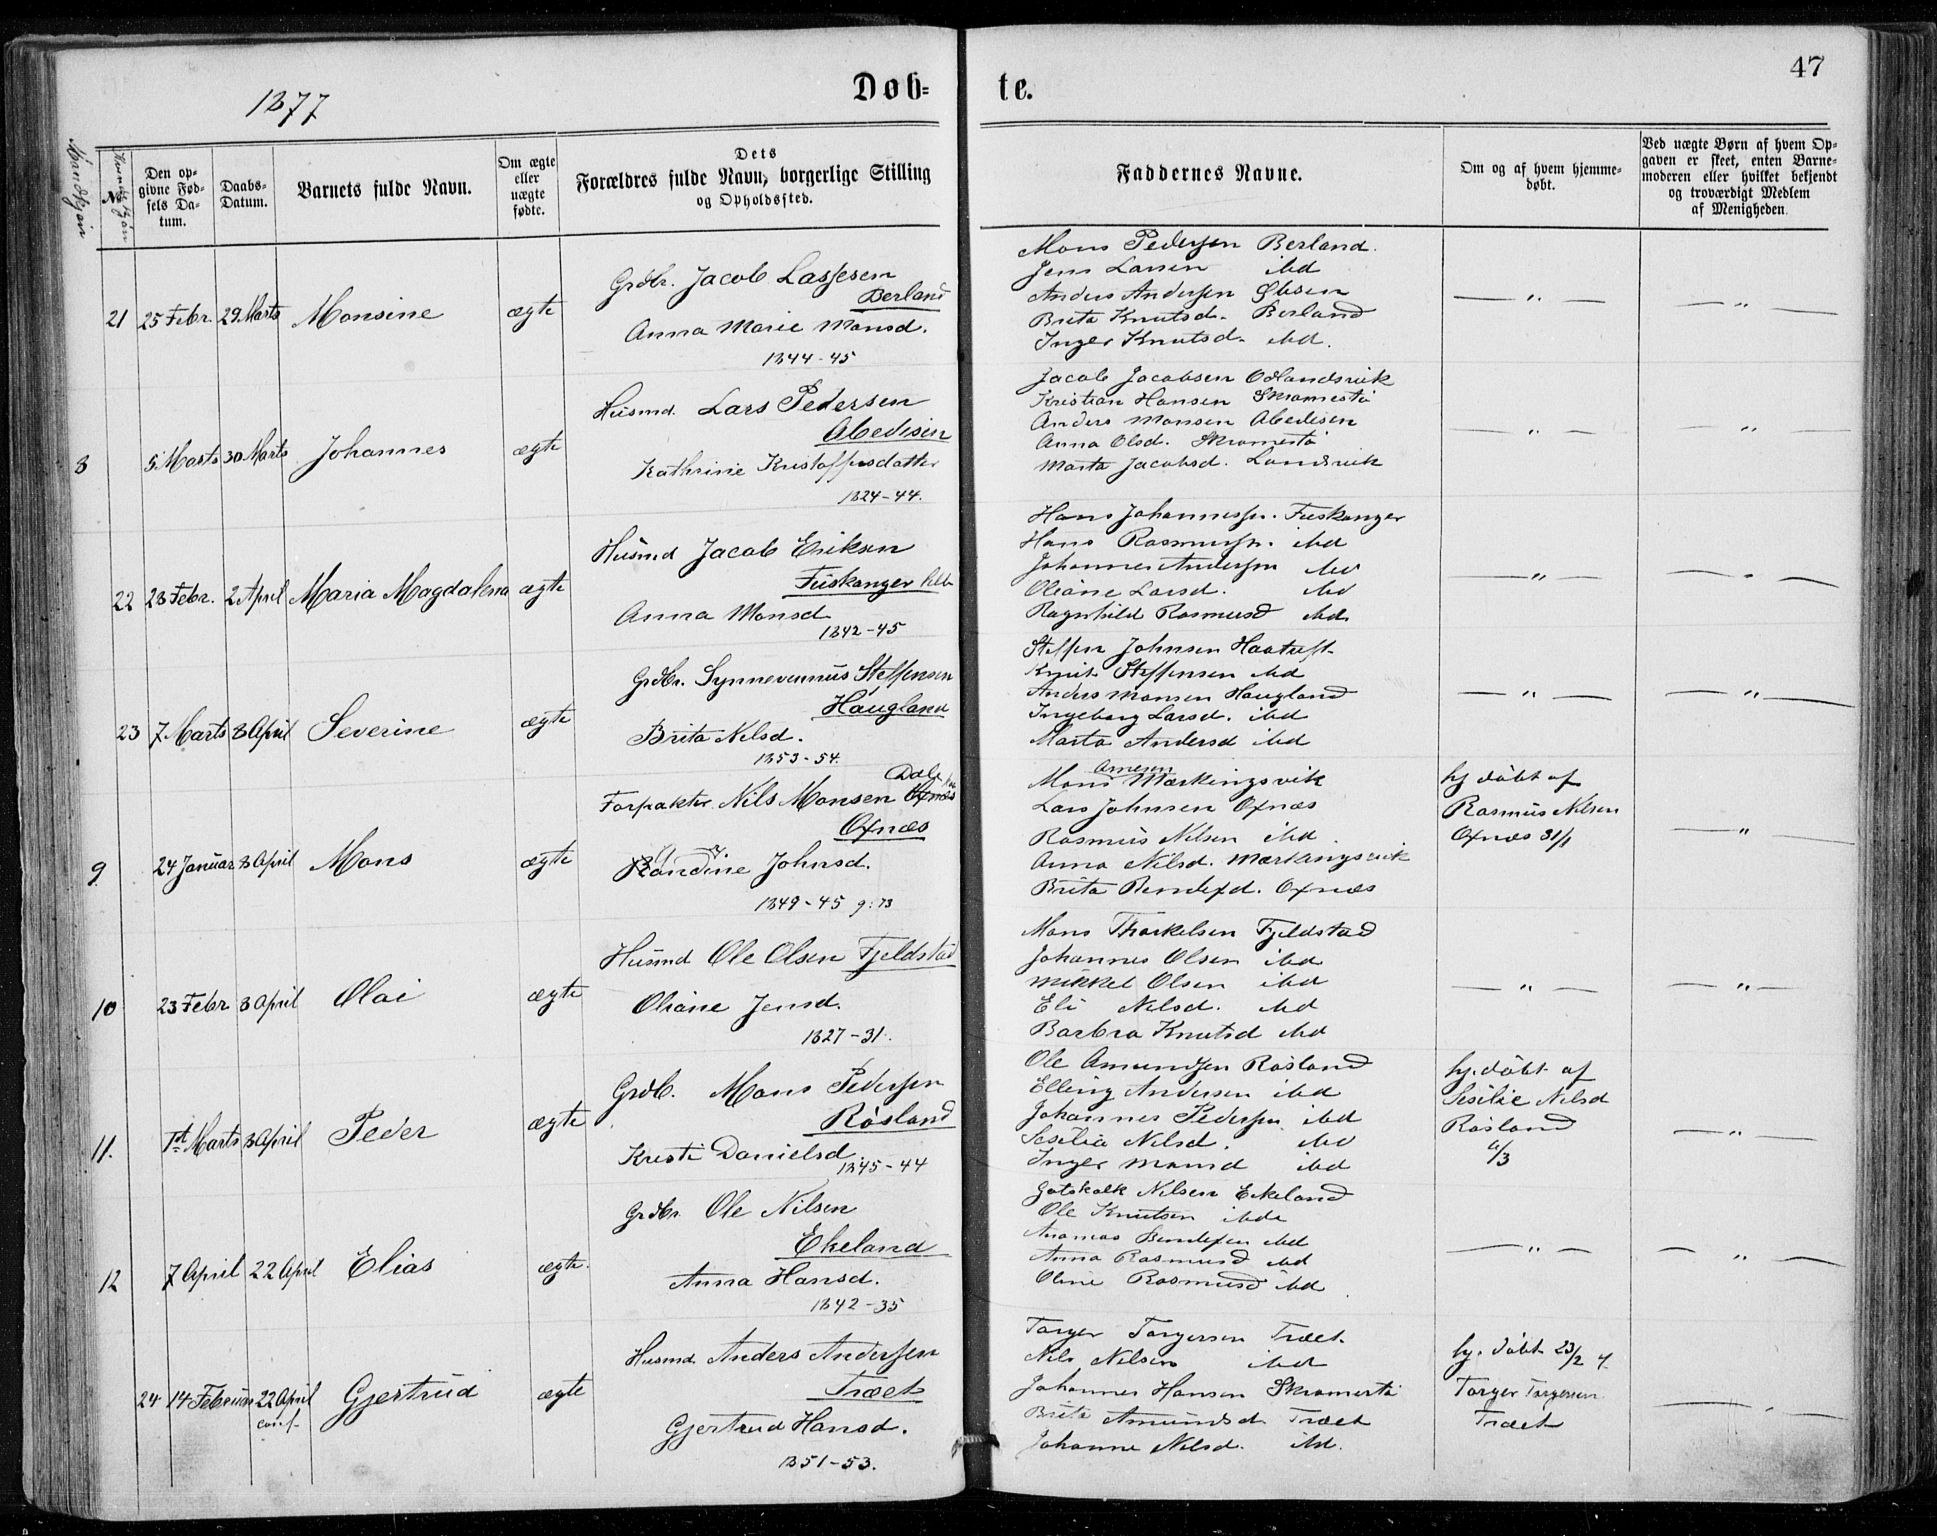 1877
Døb=
te.
47
Mandkjøn
Kvindekjøn
No
Den op-
givne Fød-
sels Da-
tum.
Daabs-
Datum.
Barnets fulde Navn.
Om ægte
eller
uægte
fødte.
Dets
Forældres fulde Navn, borgerlige Stilling
og Opholdssted.
Faddernes Navne.
Om og af hvem hjemme-
døbt.
Ved uægte Børn af hvem Op-
gaven er skeet, enten Barne-
moderen eller hvilket bekjendt
og troværdigt Medlem
af Menigheden.
21 25 Febr. 29 Marts Monsine ægte
Grdbr. Jacob Lassesen
Berland
Anna Marie Monsd.
1844-45
Mons Pedersen Berland.
Jens Larsen ibd
Anders Andersen
Brita Knutsd. Berland
Inger Knutsd. ibd.
— " —
— " —
8 5 Marts 30 Marts Johannes ægte
Husmd. Lars Pedersen
Abedisen
Kathrine Kristoffersdatter
1824-44.
Jacob Jacobsen
Kristian Hansen Skromestø
Anders Monsen Abedisen
Anna Olsd. Skromestø
Marta Jacobsd. Landsvik
— " —
— " —
22 28 Febr. 2 April Maria Magdalena ægte
Husmd Jacob Eriksen
Fuskanger
Anna Monsd
1842-45
Hans Johannessen. Fuskanger
Hans Rasmussen. ibd
Johannes Andersen ibd
Oliane Larsd. ibd
Ragnhild Rasmusd ibd.
— " —
— " —
23 7 Marts 8 April Severine ægte
Grdbr. Synnevennus Steffensen
Haugland
Brita Nelsd.
1853-54.
Steffen Johnsen Haatuft
Knut Steffensen ibd
Anders Monsen Haugland
Ingeborg Larsd. ibd
Marta Andersd ibd
— " —
— " —
9 24 Januar 8 April Mons ægte
Forpakter Nils Monsen Dale
Oxnæs
Oxnæs
Randine Johnsd.
1849-45 9:73
Arnesen
Mons Mærkingsvik
Lars Johnsen Oxnæs
Rasmus Nilsen ibd
Anna Nilsd. Mærkingsvik
Brita Bendixd. Oxnæs
hj døbt af
Rasmus Nilsen
Oxnæs 31/1
— " —
10 23 Febr 8 April Olai ægte
Husmd Ole Olsen Fjeldstad
Oliane Jensd.
1827-31.
Mons Thorkelsen Fjeldstad
Johannes Olsen ibd
Mikkel Olsen ibd
Eli Nilsd. ibd
Barbra Knutsd ibd
— " —
— " —
11. 1st Marts 8 April Peder ægte
Grdb. Mons Pedersen
Røsland
Kristi Danielsd.
1845-44
Ole Amundsen Røsland
Elling Andersen ibd
Johannes Pedersen ibd
Sesilia Nilsd. ibd
Inger Monsd ibd
hj. døbt af
Sesilie Nilsd
Røsland
4/3
— " —
12 7 April 22 April Elias ægte.
Grdbr. Ole Nilsen
Ekeland
Anna Hansd.
1842-35
Gotskalk Nilsen Ekeland
Ole Knutsen ibd
Bendixen ibd
Anna Rasmusd ibd
Oline Rasmusd ibd
— " —
— " —
24 14 Februar 22 April conf. Gjertrud ægte
Husmd. Anders Andersen
Træet
Gjertrud Hansd.
1851-53.
Torger Torgersen Træet
Nils Nilsen ibd
Johannes Hansen Skromestø
Brita Amundsd. Træet
Johanne Nilsd. ibd.
hj. døbt 23/2
Torger Torgersen
Træet
— " —